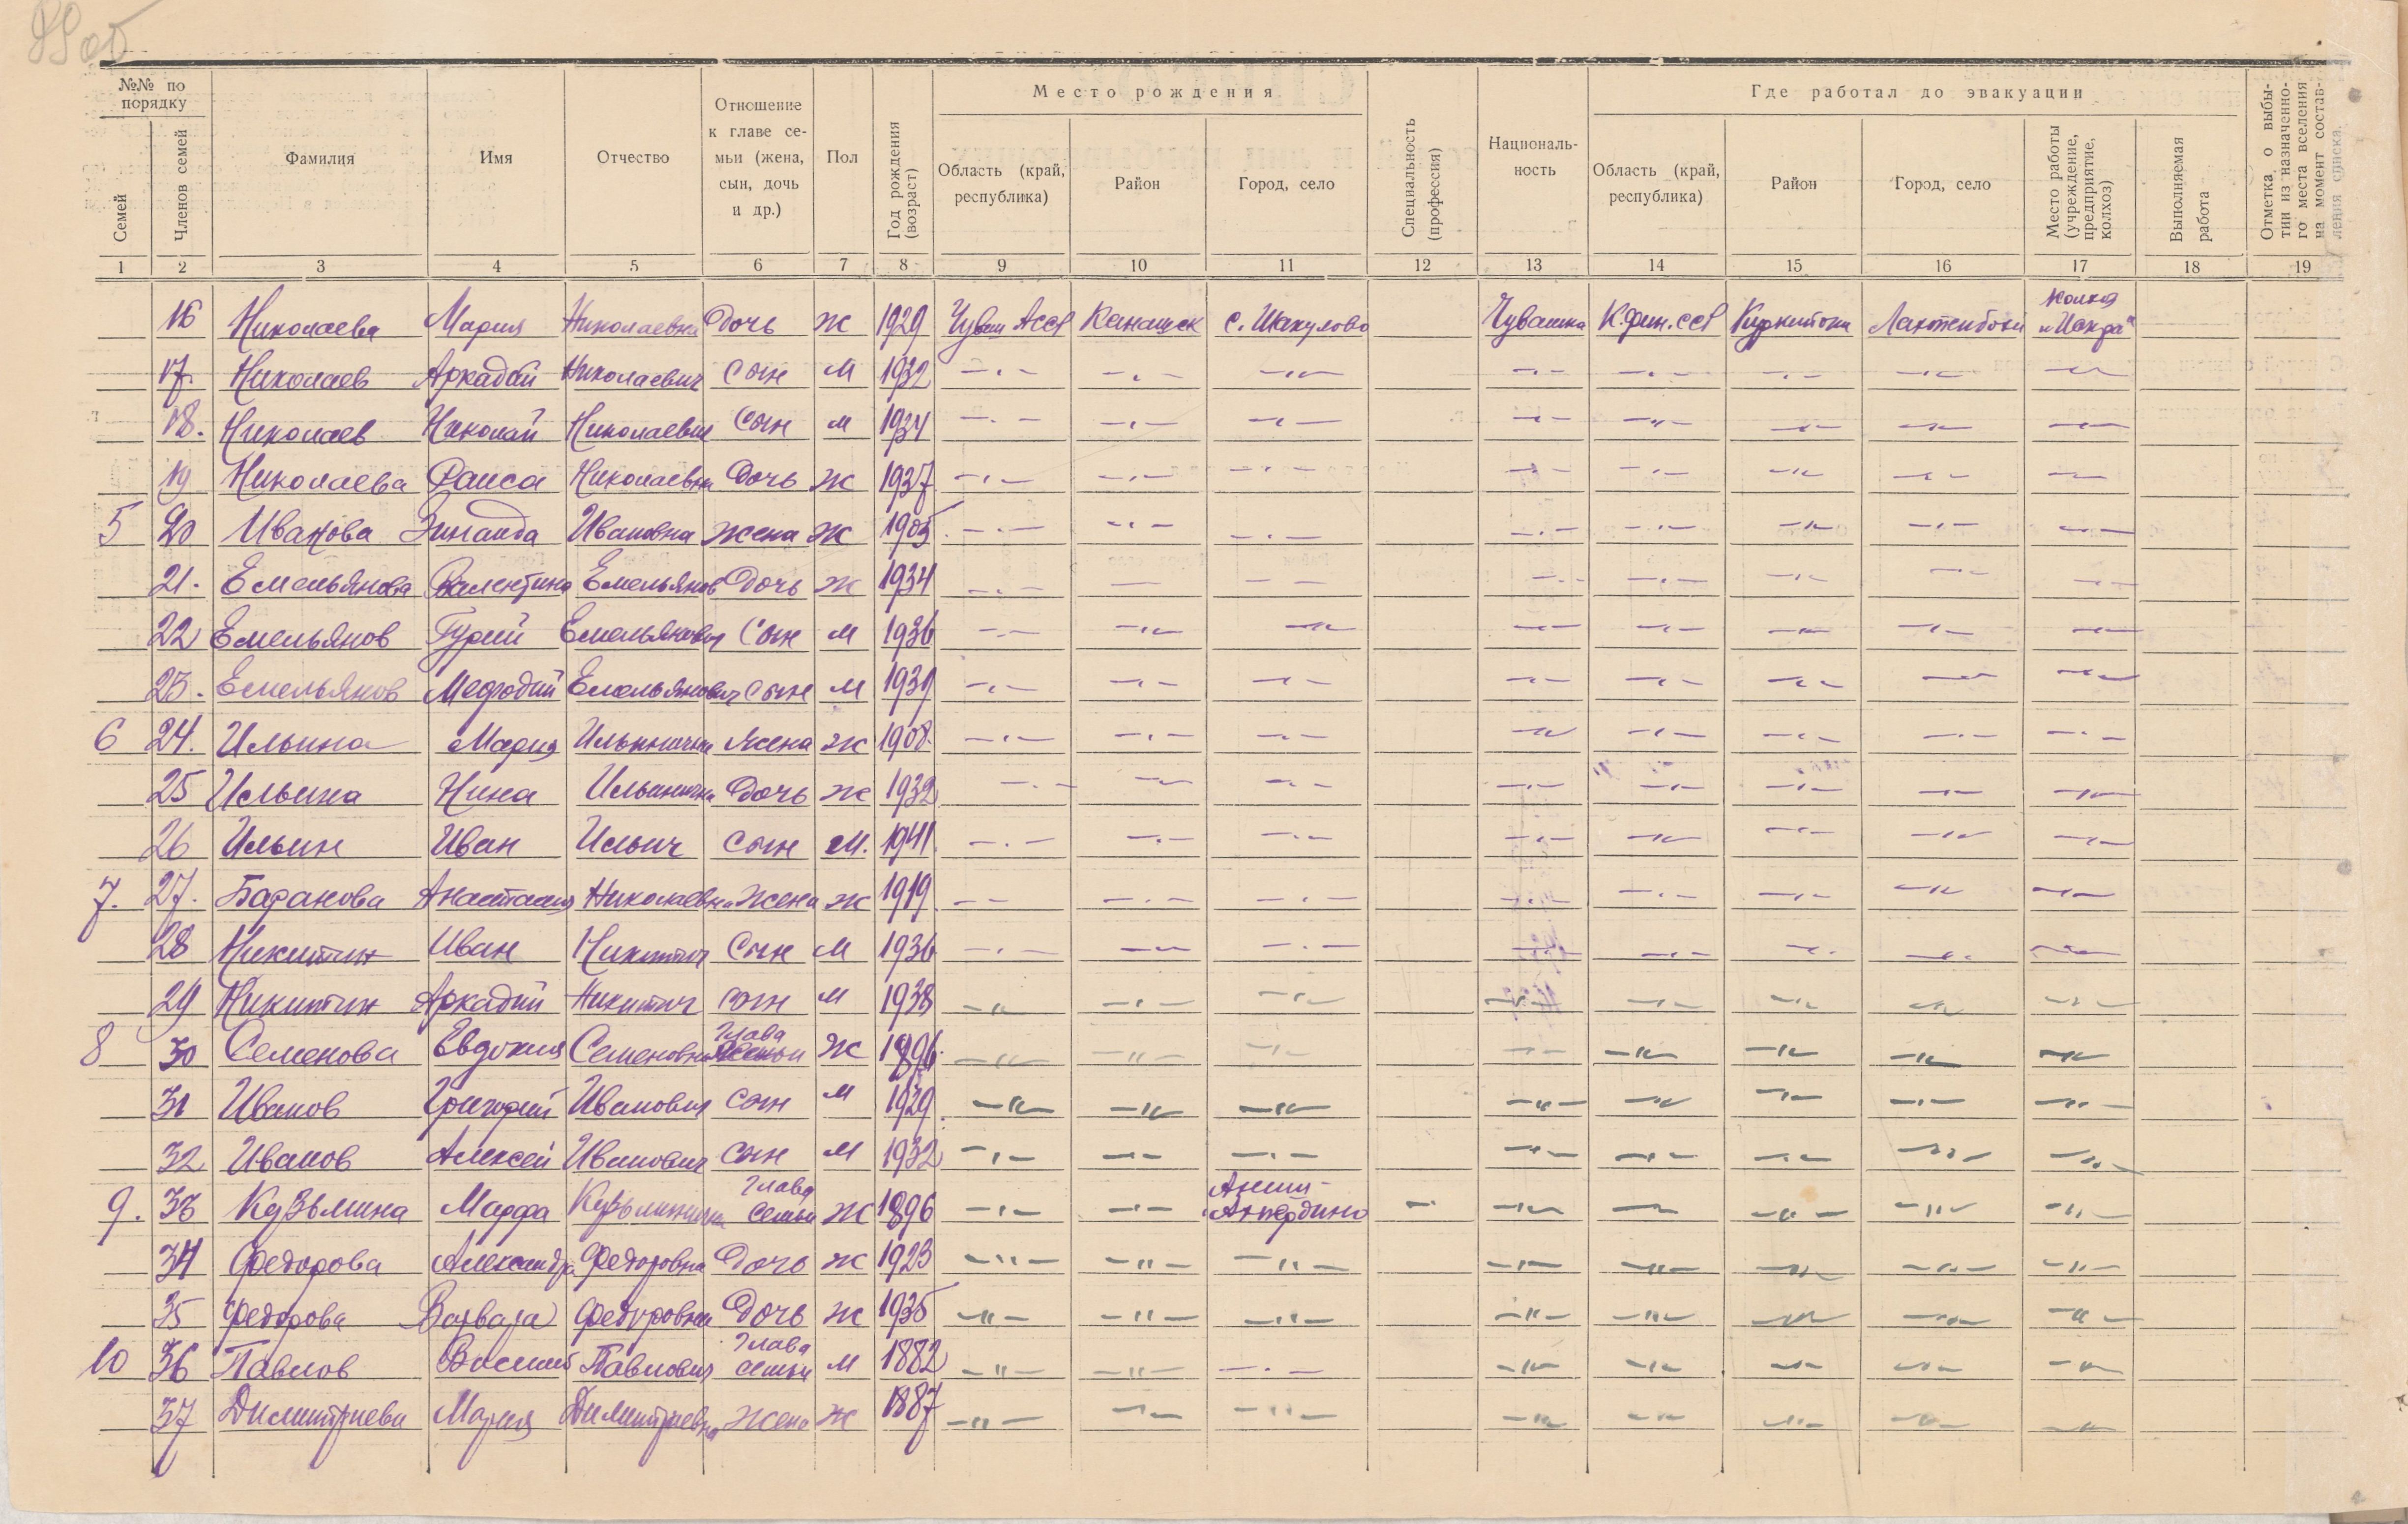 99об
№№ по порядку
Семей
Членов семей
Фамилия
Имя
Отчество
Отношение к главе се-мьи (жена, сын, дочь и др.)
Пол
Год рождения (возраст)
Место рождения
Область (край, республика)
Район
Город, село
Специальность (профессия)
Националь-ность
Где работал до эвакуации
Область (край, республика)
Район
Город, село
Место работы (учреждение, предприятие, колхоз)
Выполняемая работа
Отметка о выбы-тии из назначенно-го места вселения на момент состав-ления списка.
1 2 3 4 5 6 7 8 9 10 11 12 13 14 15 16 17 18 19
16 Николаева Мария Николаевна Дочь ж 1929 Чуваш АССР Канашск с. Шакулово Чувашка К.фин.ССР Куркиёки колхоз „Искра"
17. Николаев Аркадий Николаевич сын м 1932 — " —
18. Николаев Николай Николаевич Сын м 1934 — " —
19 Николаева Раиса Николаевна Дочь ж 1937 — " —
5 20 Иванова Зинаида Ивановна жена ж 1905 — " —
21. Емельянова Валентина Емельянов Дочь ж 1934 — " —
22 Емельянов Гурий Емельянович Сын м 1936 — " —
23. Емельянов Мефодий Емельянович сын м 1939 — " —
6 24. Ильина Мария Ильинична Жена ж 1908. — " —
25 Ильина Нина Ильинична Дочь ж 1932 — " —
26 Ильин Иван Ильич сын м. 1941. — " —
7. 27. Баранова Анастасия Николаевна жена ж 1919. — " —
28 Никитин Иван Никитич Сын м 1936 — " —
29 Никитин Аркадий Никитич сын м 1938 — " —
8 30 Семенова Евдокия Семеновна Глава семьи ж 1896. — " —
31 Иванов Григорий Иванович сын м 1929. — " —
32 Иванов Алексей Иванович сын м 1932 — " —
9. 33 Кузьмина Марфа Кузьминична Глава семьи ж 1896 — " —
34 Федорова Александра Федоровна Дочь ж 1923 — " —
35 Федорова Варвара Федоровна Дочь ж 1935 — " —
10 36 Павлов Василий Павлович Глава семьи м 1882 — " —
37 Димитриева Мария Димитриевна жена ж 1887 — " —